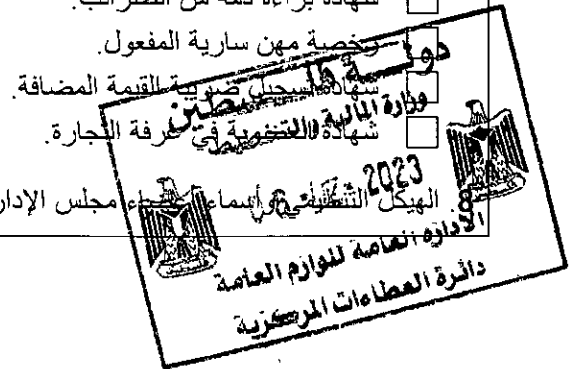 شهادة براءة ذمة من الضرائب.
رخصة مهن سارية المفعول.
شهادة تسجيل ضريبة القيمة المضافة.
شهادة العضوية في غرفة التجارة.
الهيكل التنظيمي وأسماء أعضاء مجلس الإدار
دولة فلسطين
وزارة المالية والتخطيط
2023
الادارة العامة للوازم العامة
دائرة العطاءات المركزية